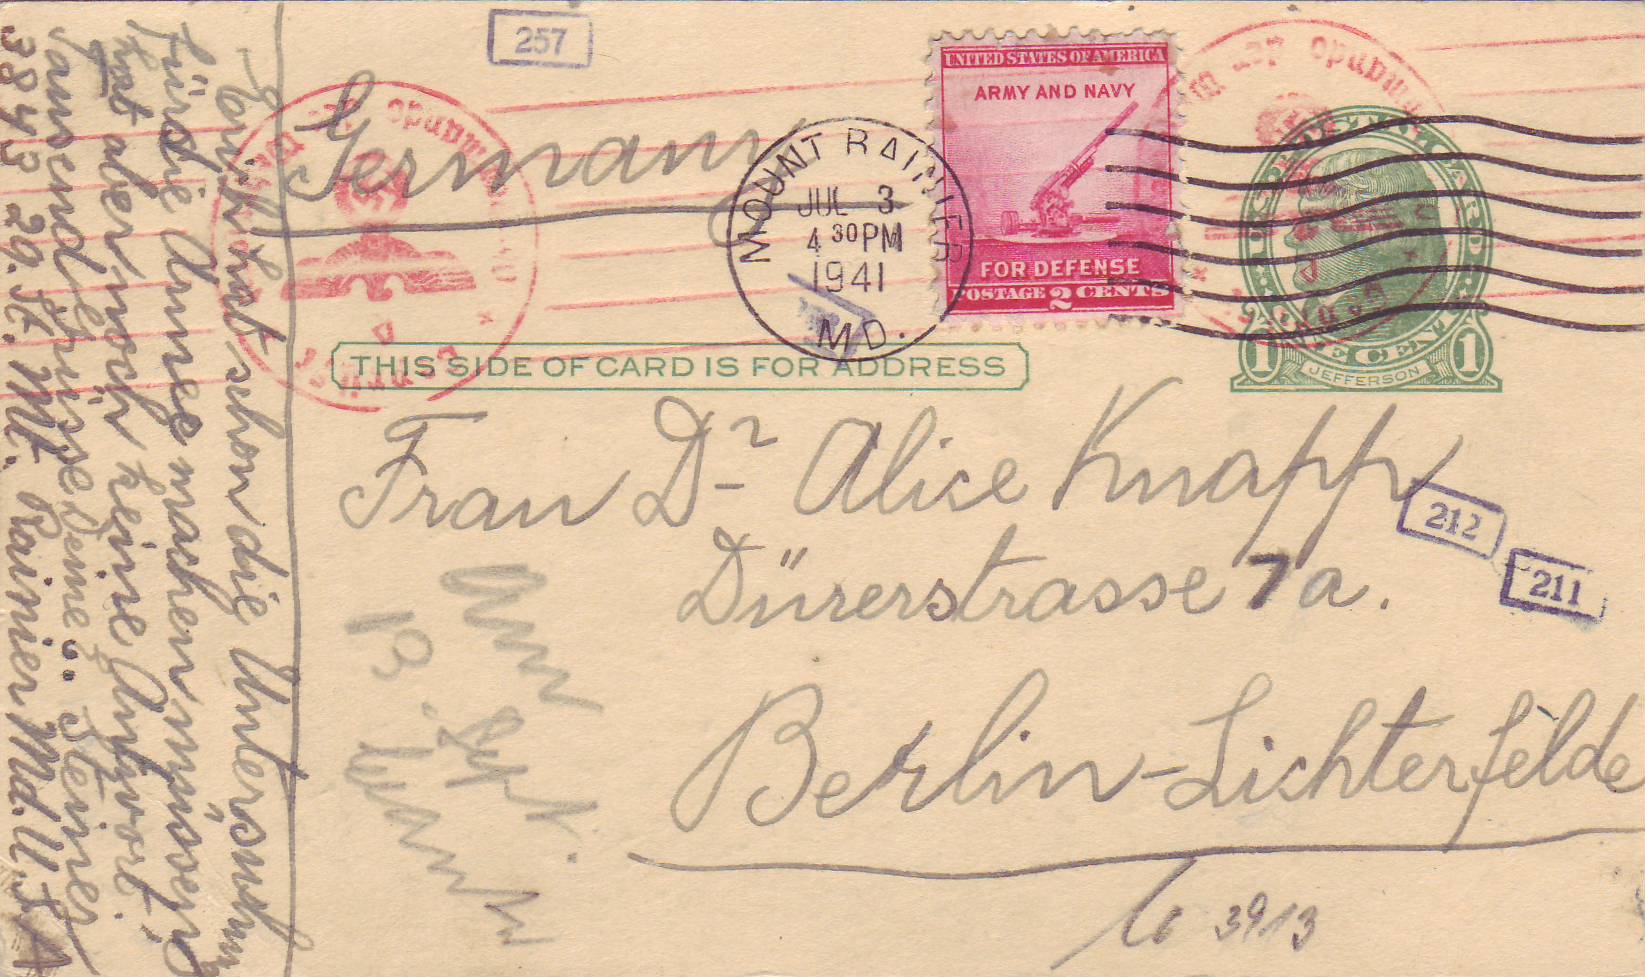 257
Germany
MOUNT RAINIER
JUL 3
4 30 PM
1941
MD.
UNITED STATES OF AMERICA
ARMY AND NAVY
FOR DEFENSE
POSTAGE 2 CENTS
1 1
JEFFERSON
THIS SIDE OF CARD IS FOR ADDRESS
Frau Dr Alice Knapp
212
Dürerstrasse 7a.
211
Berlin-Lichterfelde
3913
13. Sept.
hat schon die Untersuchung
für die Arme machen müssen,
hat aber noch keine Antwort.
Tausend Grüsse Deine. Steiner
3843 29. St. Mt. Rainier Md. U.S.A